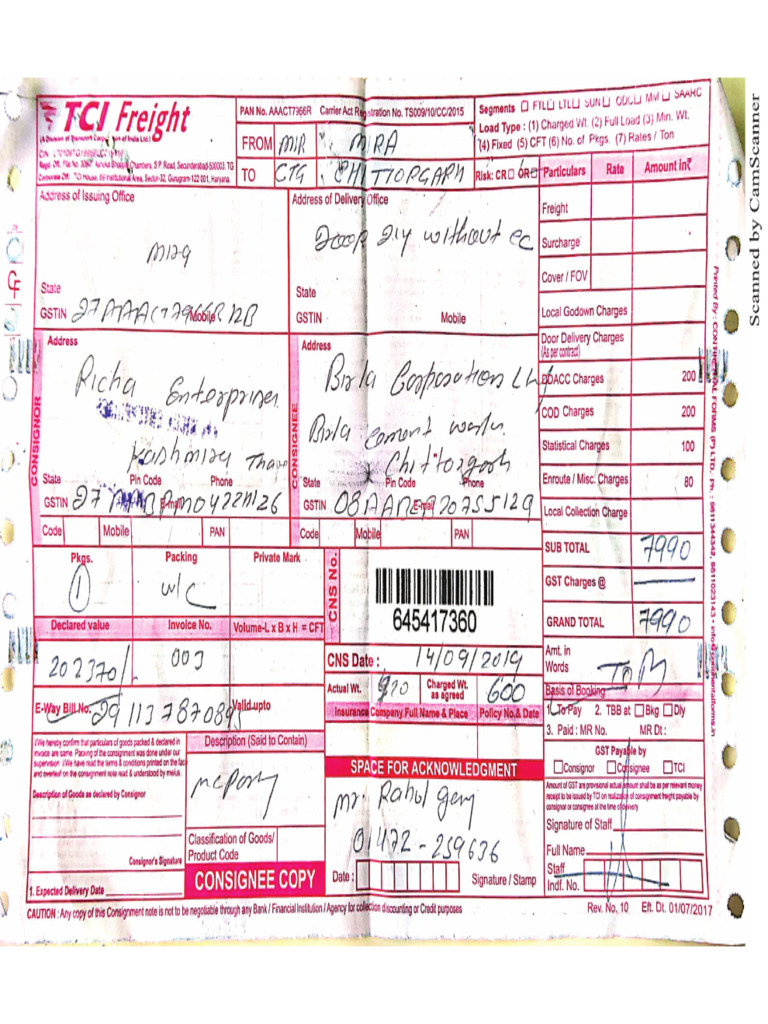 TCI Freight
(A Division of Transport Corporation of India Ltd.)
Regd. Off. Flat No. 306, Ashoka Bhoopal Chambers, S P Road, Secunderabad-500003. TG
Corporate Off. TCI House, 69 Institutional Area, Sector-32, Gurugram-122 001, Haryana.
PAN No. AAACT7966R Carrier Act Registration No. TS009/10/CC/2015
FROM MIR MIRA
TO CTG CHITTORGARH
Segments FTL LTL SUN ODC MM SAARC
Load Type : (1) Charged Wt. (2) Full Load (3) Min. Wt.
(4) Fixed (5) CFT (6) No. of Pkgs. (7) Rates / Ton
Risk: CR OR
Particulars Rate Amount in₹
Address of Issuing Office
State
GSTIN 27AAACT7966R Mobile
Address of Delivery Office
Door Dly without CC
State
GSTIN Mobile
Freight
Surcharge
Cover / FOV
Local Godown Charges
Door Delivery Charges
(As per contract)
DDACC Charges 200
COD Charges 200
Statistical Charges 100
Enroute / Misc. Charges 80
Local Collection Charge
SUB TOTAL 7990
GST Charges @
GRAND TOTAL 7990
CONSIGNOR
Address
Richa Enterprises
Kashmira Thane
State Pin Code Phone
GSTIN E-mail
Code Mobile PAN
CONSIGNEE
Address
Birla Corporation Ltd
Birla Cement Works
Chittorgarh
State Pin Code Phone
GSTIN E-mail
Code Mobile PAN
Pkgs. Packing Private Mark
1 W/C
Declared value Invoice No. Volume-L x B x H = CFT
202370/- 003
E-Way Bill No. Valid upto
CNS No.
645417360
CNS Date : 14/09/2019
Actual Wt. 920 Charged Wt. as agreed 600
Insurance Company Full Name & Place Policy No.& Date
Amt. in
Words
Basis of Booking
1. To Pay 2. TBB at Bkg Dly
3. Paid : MR No. MR Dt :
GST Payable by
Consignor Consignee TCI
Amount of GST are provisional actual amount shall be as per relevant money
receipt to be issued by TCI on realization of consignment freight payable by
consignor or consignee at the time of delivery
Signature of Staff
Full Name
Staff
Indf. No.
I/We hereby confirm that particulars of goods packed & declared in
invoice are same. Packing of the consignment was done under our
supervision. I/We have read the terms & conditions printed on the face
and overleaf on the consignment note read & understood by me/us.
Description of Goods as declared by Consignor
Consignor's Signature
1. Expected Delivery Date
Description (Said to Contain)
Classification of Goods/
Product Code
CONSIGNEE COPY
SPACE FOR ACKNOWLEDGMENT
Mr. Rahul Garg
01472-259636
Date : Signature / Stamp
CAUTION : Any copy of this Consignment note is not to be negotiable through any Bank / Financial Institution / Agency for collection discounting or Credit purposes
Rev. No. 10 Eft. Dt. 01/07/2017
Scanned by CamScanner